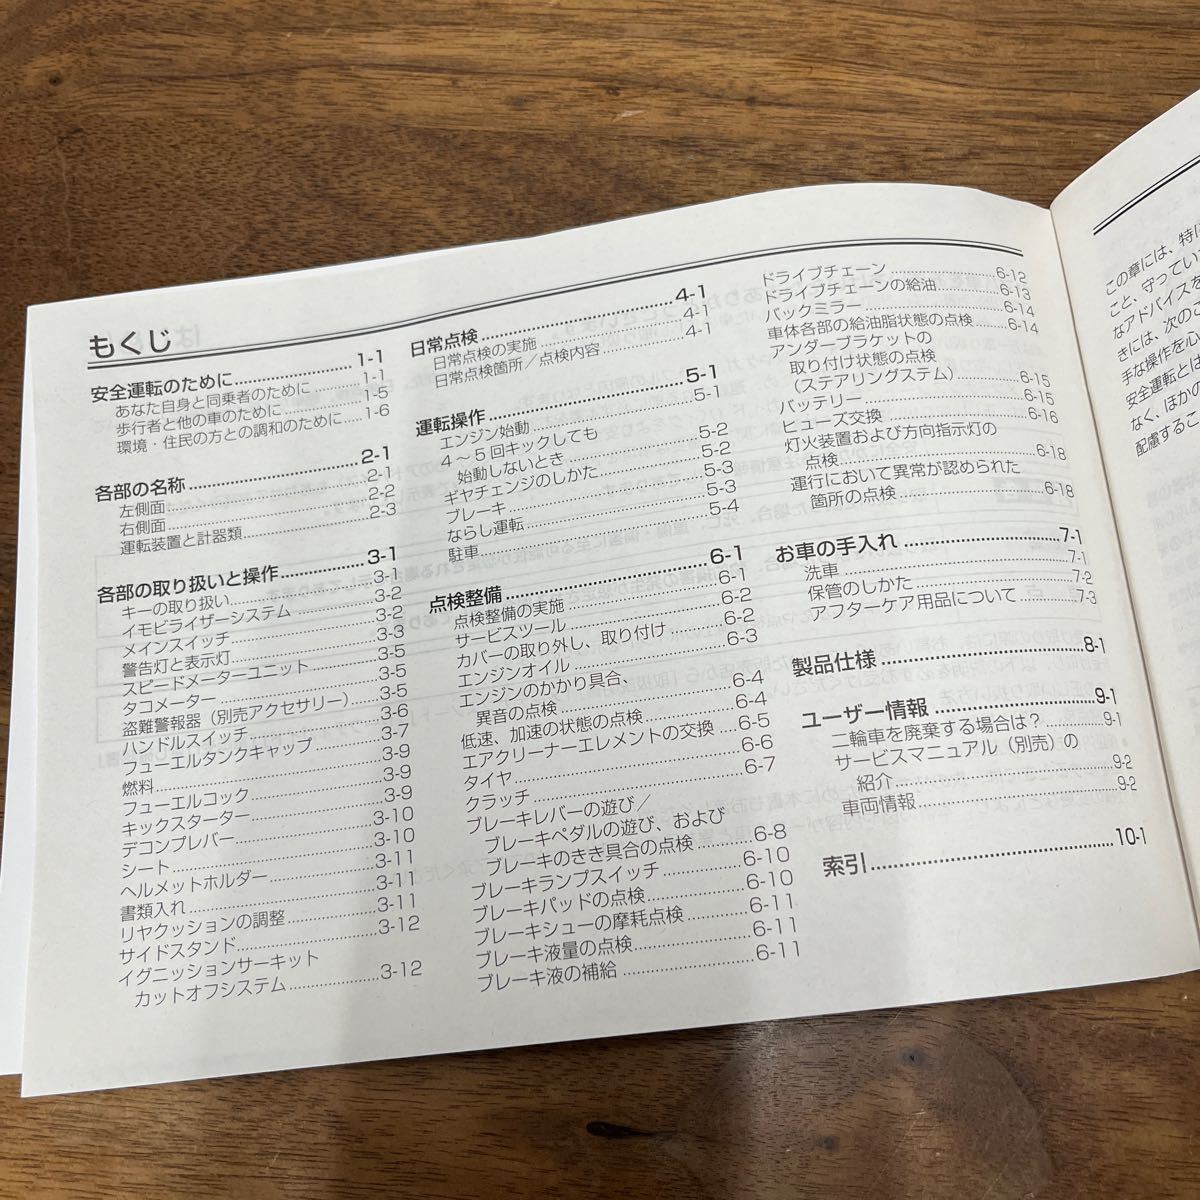 もくじ
安全運転のために 1-1
あなた自身と同乗者のために 1-1
歩行者と他の車のために 1-5
環境・住民の方との調和のために 1-6
各部の名称 2-1
左側面 2-1
右側面 2-2
運転装置と計器類 2-3
各部の取り扱いと操作 3-1
キーの取り扱い 3-1
イモビライザーシステム 3-2
メインスイッチ 3-2
警告灯と表示灯 3-3
スピードメーターユニット 3-5
タコメーター 3-5
盗難警報器（別売アクセサリー） 3-5
ハンドルスイッチ 3-6
フューエルタンクキャップ 3-7
燃料 3-9
フューエルコック 3-9
キックスターター 3-9
デコンプレバー 3-10
シート 3-10
ヘルメットホルダー 3-11
書類入れ 3-11
リヤクッションの調整 3-11
サイドスタンド 3-12
イグニッションサーキット
カットオフシステム 3-12
日常点検 4-1
日常点検の実施 4-1
日常点検箇所／点検内容 4-1
運転操作 5-1
エンジン始動 5-1
4～5回キックしても
始動しないとき 5-2
ギヤチェンジのしかた 5-2
ブレーキ 5-3
ならし運転 5-3
駐車 5-4
点検整備 6-1
点検整備の実施 6-1
サービスツール 6-2
カバーの取り外し、取り付け 6-2
エンジンオイル 6-3
エンジンのかかり具合、
異音の点検 6-4
低速、加速の状態の点検 6-4
エアクリーナーエレメントの交換 6-5
タイヤ 6-6
クラッチ 6-7
ブレーキレバーの遊び／
ブレーキペダルの遊び、および
ブレーキのきき具合の点検 6-8
ブレーキランプスイッチ 6-10
ブレーキパッドの点検 6-10
ブレーキシューの摩耗点検 6-11
ブレーキ液量の点検 6-11
ブレーキ液の補給 6-11
ドライブチェーン 6-12
ドライブチェーンの給油 6-13
バックミラー 6-14
車体各部の給油脂状態の点検 6-14
アンダーブラケットの
取り付け状態の点検
（ステアリングステム） 6-15
バッテリー 6-15
ヒューズ交換 6-16
灯火装置および方向指示灯の
点検 6-18
運行において異常が認められた
箇所の点検 6-18
お車の手入れ 7-1
洗車 7-1
保管のしかた 7-2
アフターケア用品について 7-3
製品仕様 8-1
ユーザー情報 9-1
二輪車を廃棄する場合は？ 9-1
サービスマニュアル（別売）の
紹介 9-2
車両情報 9-2
索引 10-1
この章には、特に
こと、守ってい
なアドバイスを
きには、次のこ
手な操作を心
安全運転とは
なく、ほかの
配慮するこ